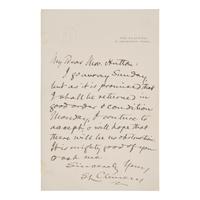 My Dear Mrs. Hutton –
I go away Sunday,
but as it is promised that
I shall be returned in
good order & condition
Monday, I venture to
accept & will hope that
there will be no obstruction.
It is mighty good of you
to ask me.
Sincerely Yours
SL. Clemens